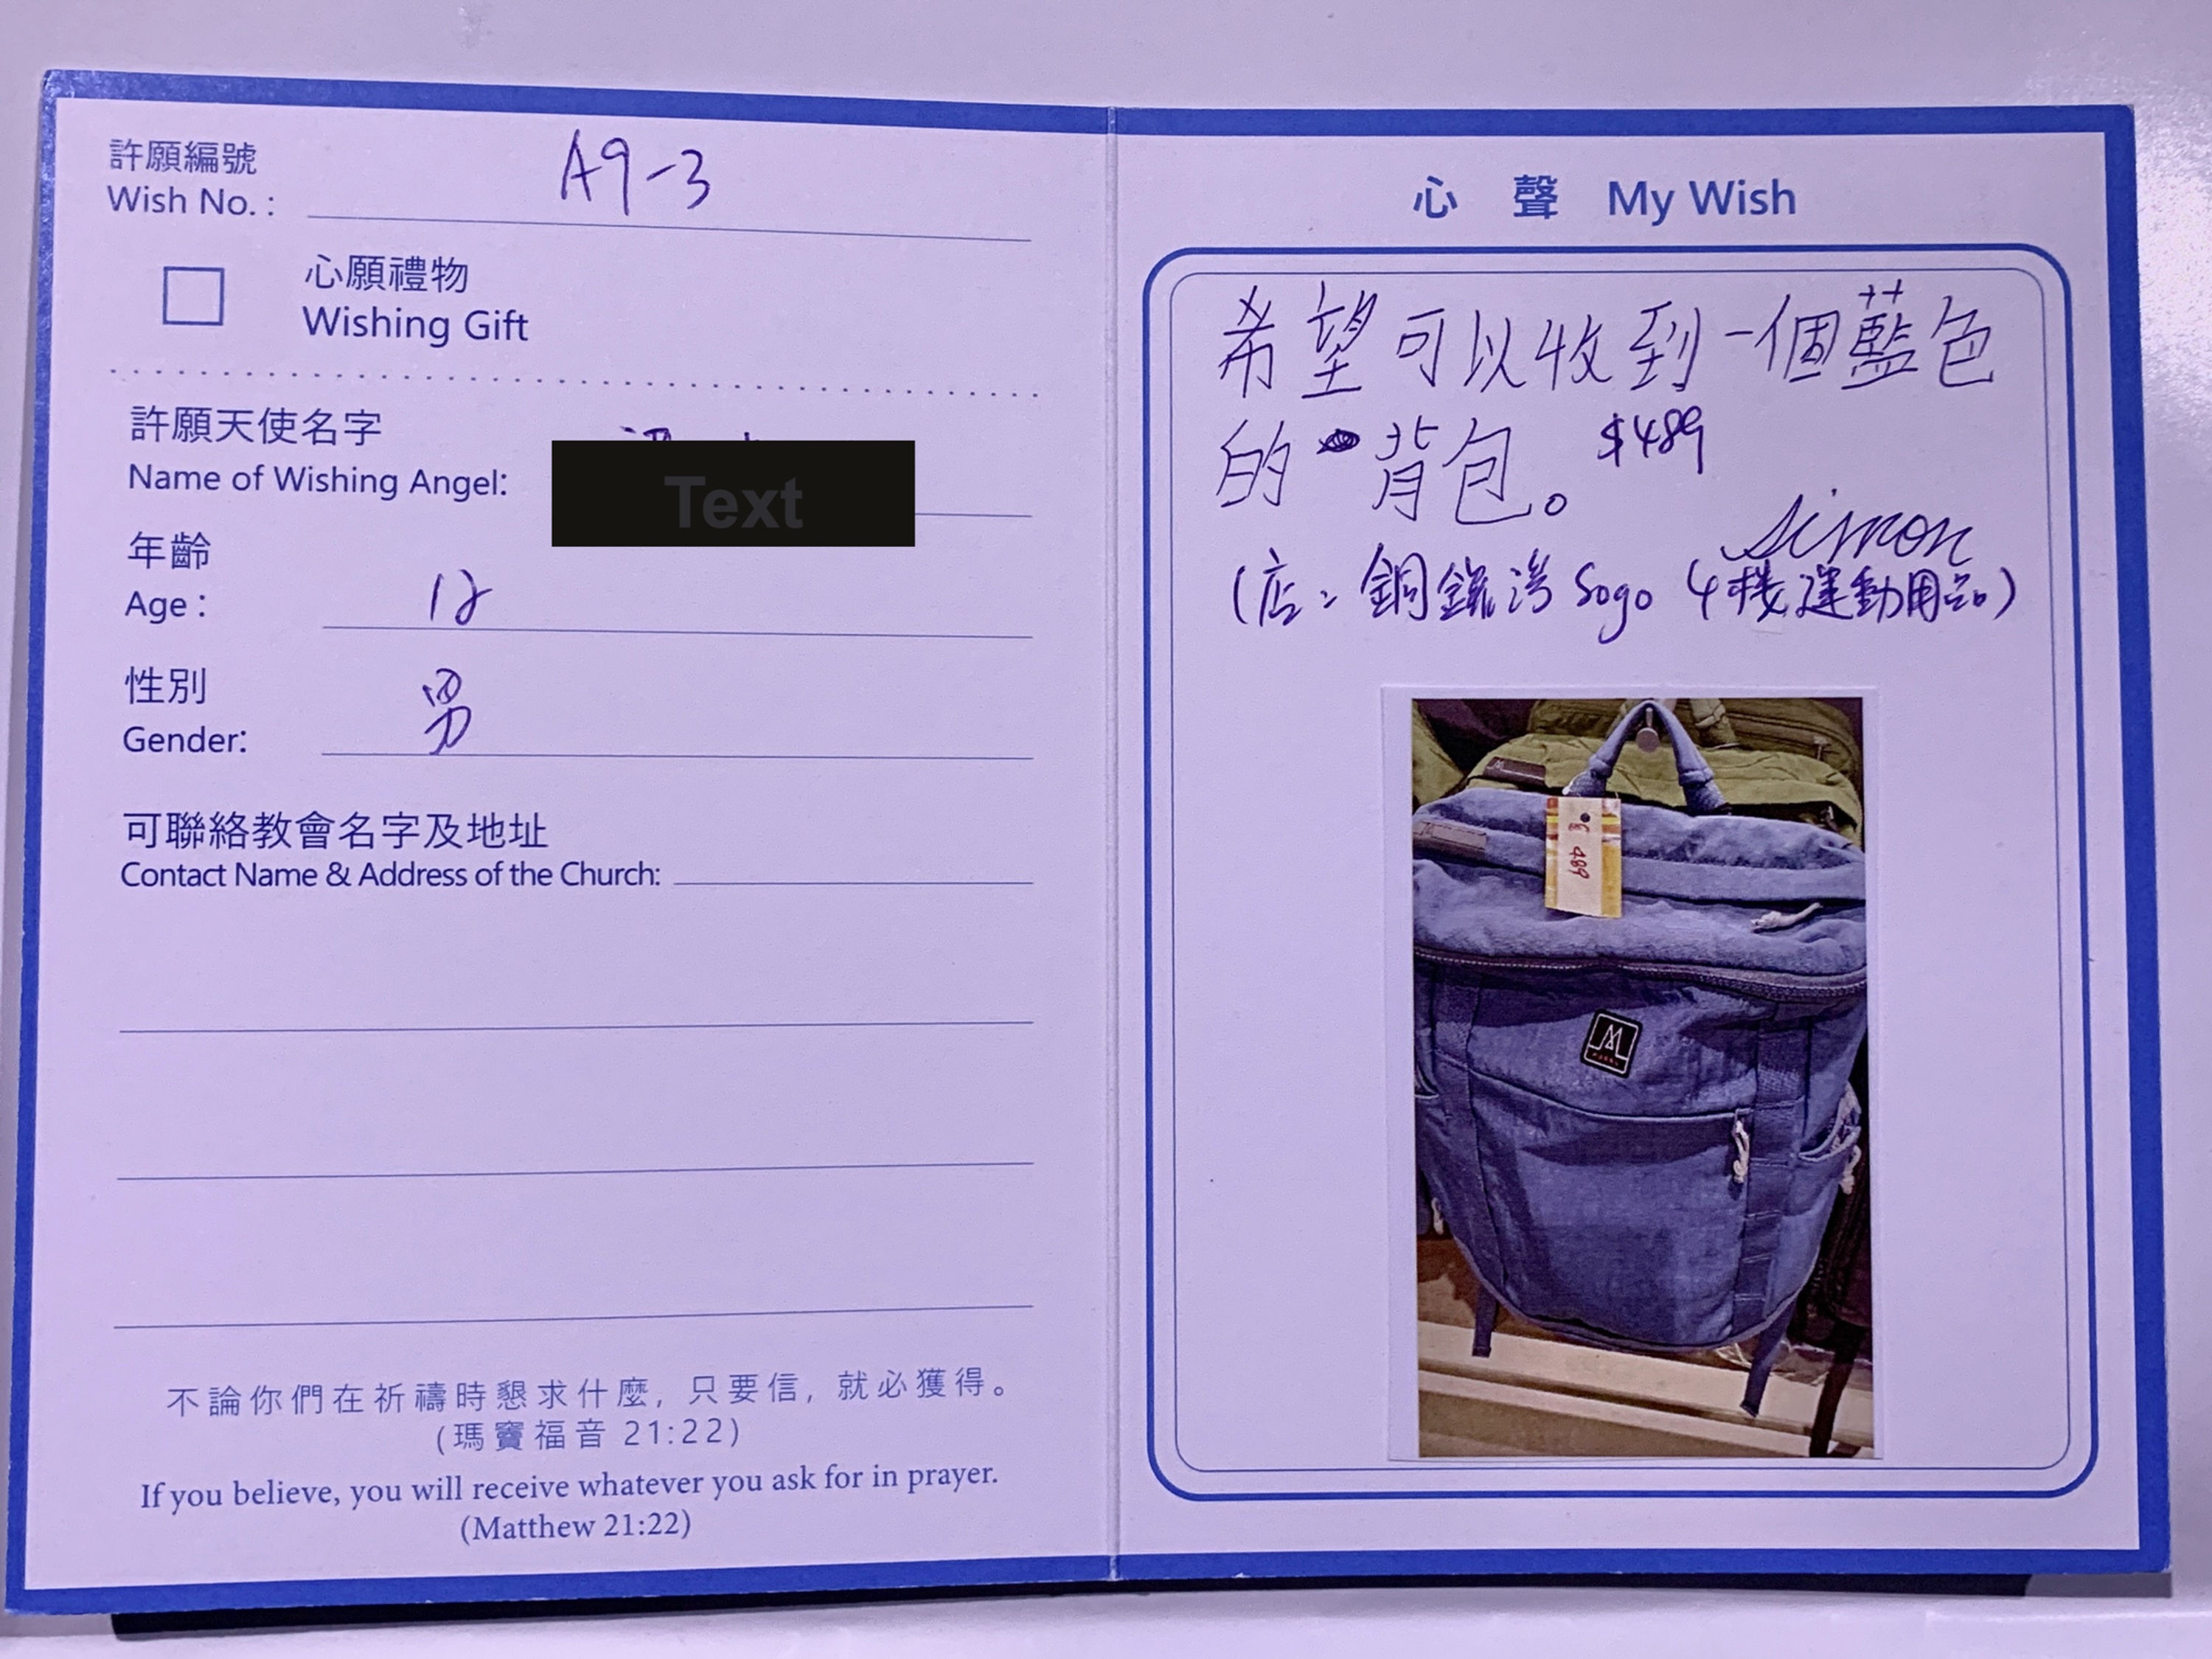 許願編號
Wish No. : A9-3
心願禮物
Wishing Gift
許願天使名字
Name of Wishing Angel:
Text
年齡
Age : 12
性別
Gender: 男
可聯絡教會名字及地址
Contact Name & Address of the Church:
不論你們在祈禱時懇求什麼, 只要信, 就必獲得。
(瑪竇福音 21:22)
If you believe, you will receive whatever you ask for in prayer.
(Matthew 21:22)
心聲 My Wish
希望可以收到一個藍色
的背包。 $489
Simon
(店: 銅鑼灣 Sogo 4樓運動用品)
$ 489